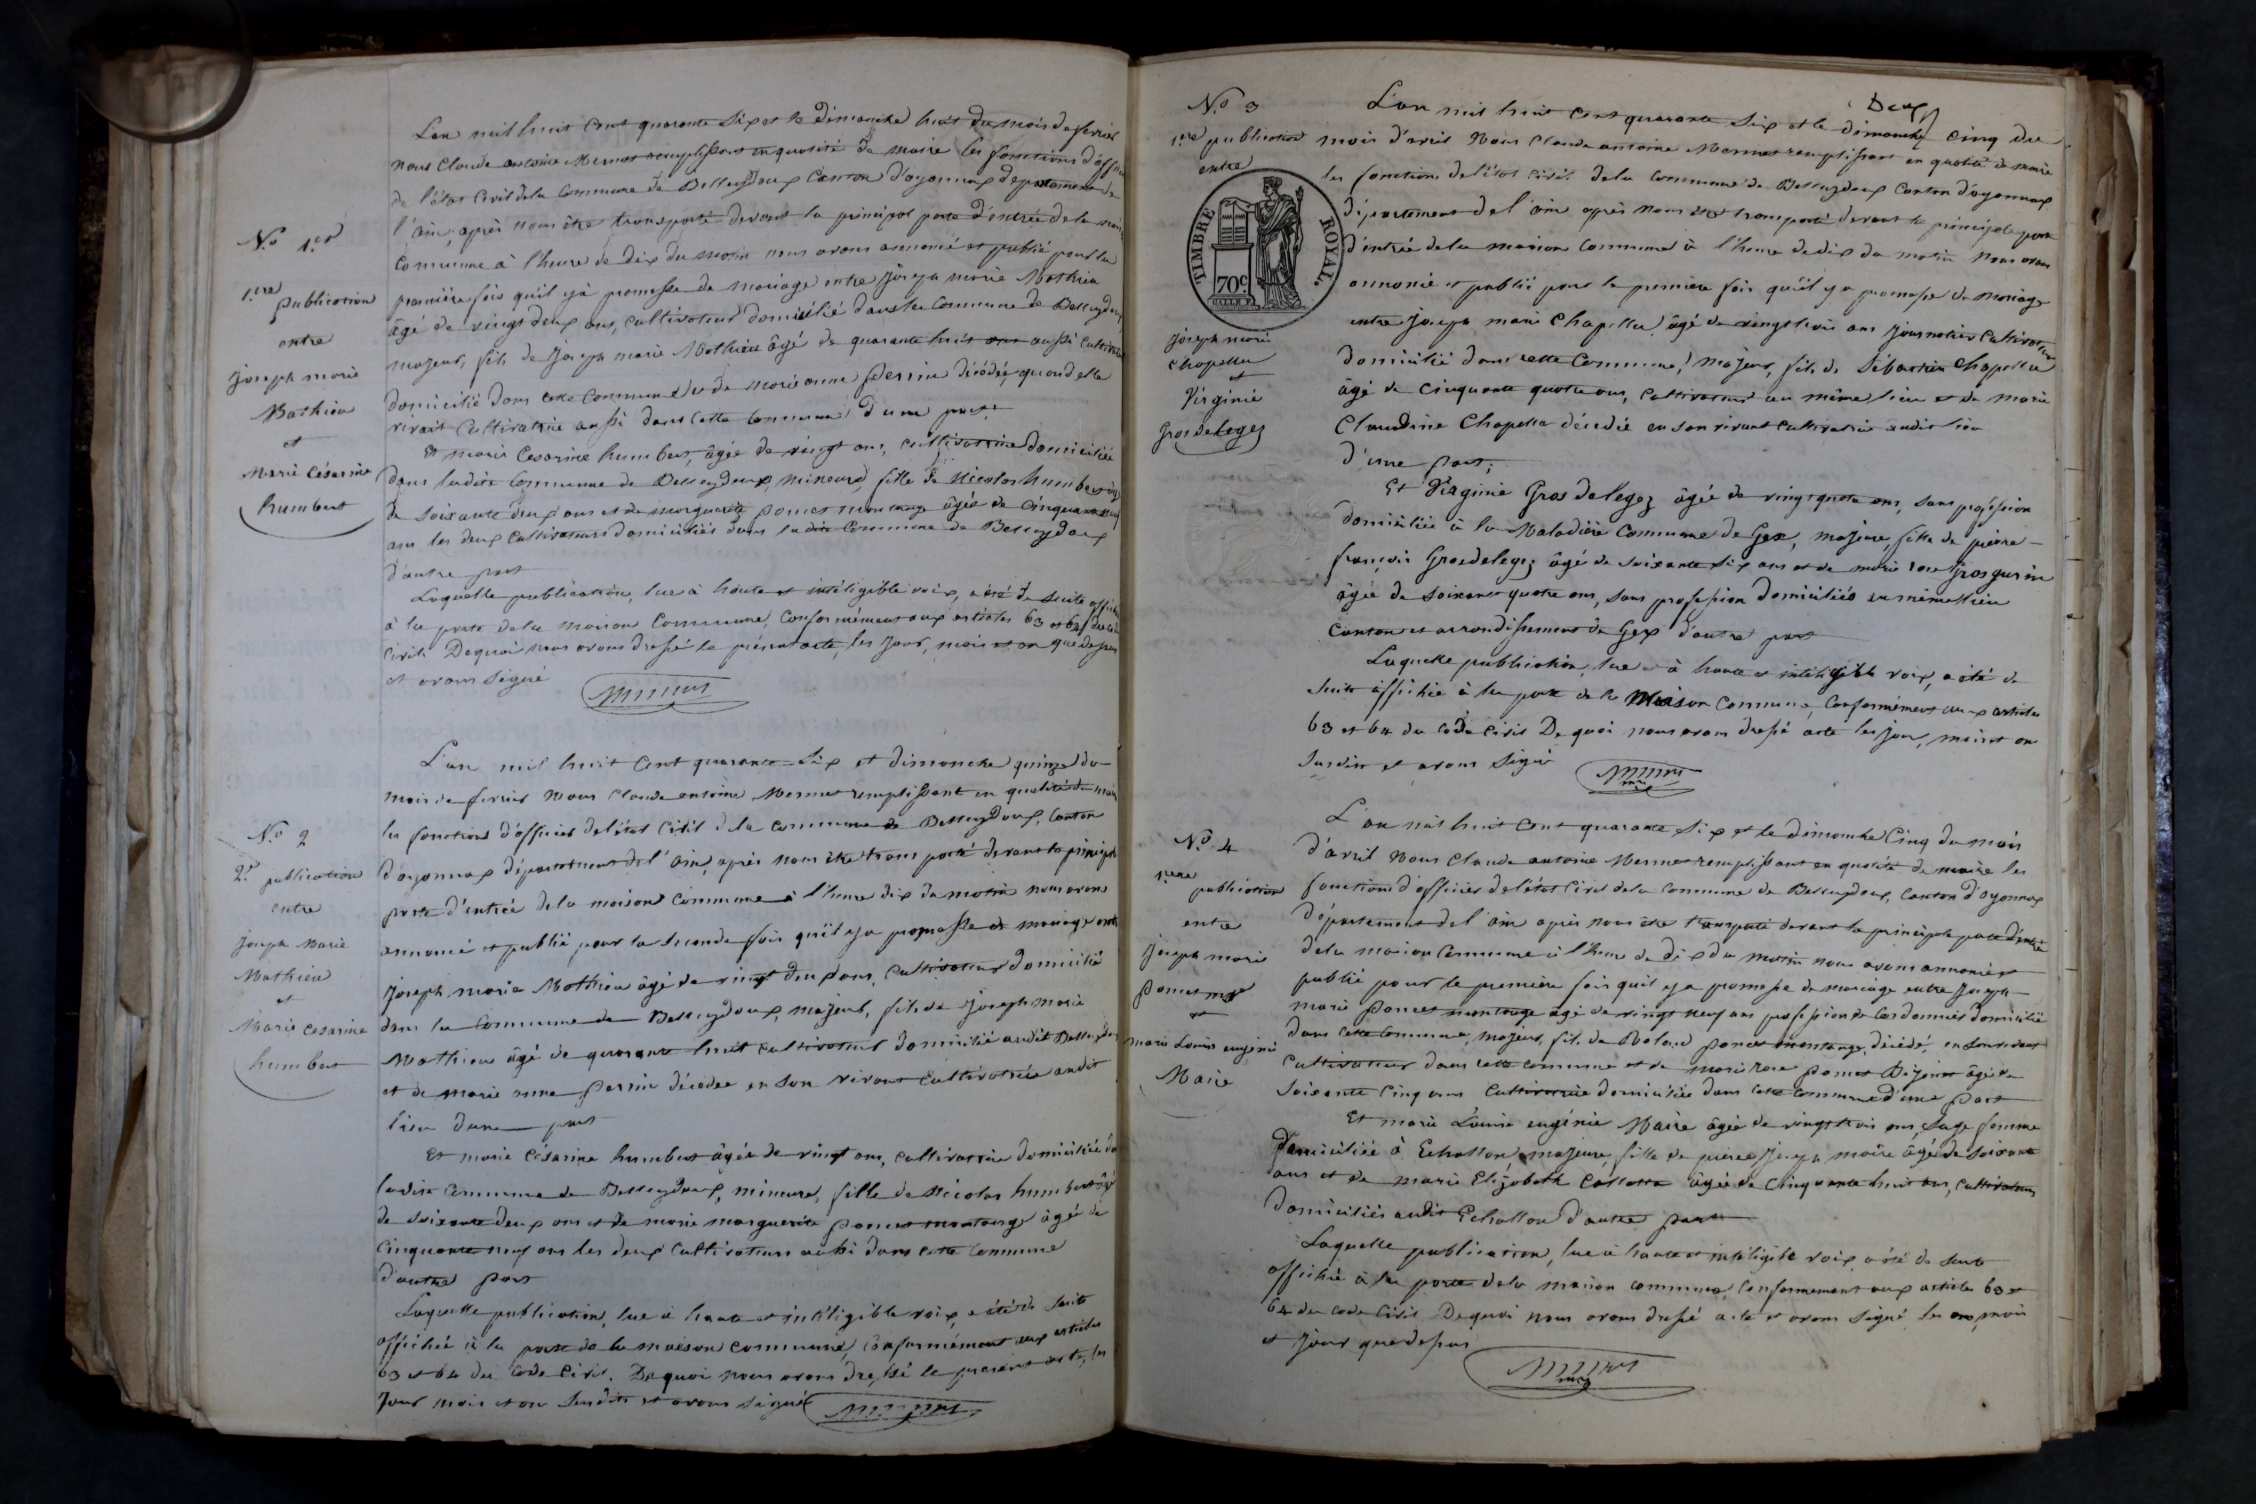 L'an mil huit cent quarante six et le dimanche huit du mois de fevrier
nous Claude antoine Mermet remplissant en qualité de maire les fonctions d'officier
de l'état Civil de la Commune de Belleydoux Canton d'oyonnax departement de
l'ain, après nous être transporté devant la principal porte d'entrée de la
Commune à l'heure de dix du matin nous avons annoncé et publié pour la
première fois qu'il y à promesse de mariage entre Joseph marie Mathieu
âgé de vingt deux ans, cultivateur domicilié dans la Commune de Belleydoux
majeur, fils de Joseph marie Mathieu âgé de quarante huit ans aussi cultivateur
domicilié dans cette Commune et de marie anne perrin décédée, quand elle
vivait Cultivatrice aussi dans cette Commune d'une part.
N.o 1.er
1.ere publication
entre
joseph marie
Mathieu
et
Marie Césarine
humbert
Et marie Cesarine humbert, âgée de vingt ans, cultivatrice domiciliée
dans ladite Commune de Belleydoux, mineure, fille de Nicolas humbert
de soixante deux ans et de marguerite poncet montange âgée de Cinquante neuf
ans les deux Cultivateurs domiciliés dans ladite Commune de Belleydoux
d'autre part
Laquelle publication, lue à haute et intéligible voix, a été de suite affichée
à la porte de la maison Commune, Conformément aux articles 63 et 64 du code
Civil. De quoi nous avons dressé le présent acte, les jour, mois et an que dessus
et avons signé
Mermet
L'an mil huit cent quarante-six et dimanche quinze du
mois de fevrier nous Claude antoine Mermet remplissant en qualité de maire
les fonctions d'officier de l'état Civil de la commune de Belleydoux, Canton
d'oyonnax département de l'ain, après nous être transporté devant la principale
porte d'entrée de la maison Commune à l'heure dix du matin nous avons
annoncé et publié pour la seconde fois qu'il y a promesse de mariage entre
Joseph marie Mathieu âgé de vingt deux ans, Cultivateur domicilié
dans la Commune de Belleydoux, majeur, fils de Joseph marie
Mathieu âgé de quarante huit cultivateur domicilié audit Belleydoux
et de marie anne perrin décédée en son vivant Cultivatrice audit
lieu d'une part
N.o 2
2.e publication
entre
joseph marie
Mathieu
et
Marie cesarine
humbert
Et marie césarine humbert âgée de vingt ans, cultivatrice domiciliée
ladite Commune de Belleydoux, mineure, fille de Nicolas humbert âgé
de soixante deux ans et de marie marguerite poncet montange âgé de
cinquante neuf ans les deux Cultivateurs aussi dans cette Commune
d'autre part
Laquelle publication, lue à haute et intéligible voix, a été de suite
affichée à la porte de la maison commune, conformément aux articles
63 et 64 du Code Civil. De quoi nous avons dressé le present acte, les
jour mois et an susdits et avons signé
Mermet
Deux
N.o 3
1.ere publication
entre
TIMBRE ROYAL.
70c
joseph marie
Chapella
et
Virginie
Grosdelegez
L'an mil huit cent quarante six et le dimanche cinq du
mois d'avril Nous Claude antoine Mermet remplissant en qualité de maire
les fonctions de l'état civil de la Commune de Belleydoux Canton d'oyonnax
département de l'ain après nous être transporté devant la principale porte
d'entrée de la maison commune à l'heure de dix du matin nous avons
annoncé et publié pour la première fois qu'il y a promesse de mariage
entre Joseph marie Chapella, âgé de vingt trois ans journalier Cultivateur
domicilié dans cette Commune, majeur, fils de Sébastien Chapella
âgé de cinquante quatre ans, cultivateur au même lieu et de marie
Claudine Chapella décédée en son vivant cultivatrice audit lieu
d'une part,
Et Virginie Gros delegez âgée de vingt quatre ans, sans profession
domiciliée à la Maladière Commune de Gex, majeure, fille de pierre
françois Grosdelegez âgé de soixante six ans et de marie rose Grosgurin
âgée de soixante quatre ans, sans profession domiciliés au même lieu
Canton et arrondissement de Gex d'autre part
Laquelle publication, lue à haute et intéligible voix, a été de
suite affichée à la porte de la Maison Commune, Conformément aux articles
63 et 64 du Code Civil De quoi nous avons dressé acte les jour, mois et an
susdits et avons signé
Mermet
N.o 4
1.ere
publication
entre
joseph marie
poncet mge
et
marie Louise eugénie
Maire
L'an mil huit cent quarante six et le dimanche Cinq du mois
d'avril Nous Claude antoine Mermet remplissant en qualité de maire les
fonctions d'officier de l'état Civil de la Commune de Belleydoux, Canton d'oyonnax
département de l'ain après nous être transporté devant la principale porte d'entrée
de la maison Commune à l'heure de dix du matin nous avons annoncé et
publié pour la première fois qu'il y a promesse de mariage entre Joseph
marie poncet montange âgé de vingt neuf ans profession de Cordonnier domicilié
dans cette Commune, majeur, fils de Roland poncet montange, décédé, en son vivant
Cultivateur dans cette commune et de marie rose poncet âgée de
soixante cinq ans Cultivatrice domiciliée dans cette commune d'une part
Et marie Louise eugénie Maire âgée de vingt trois ans, sage femme
Domiciliée à Echallon, majeure, fille de pierre Joseph maire âgé de soixante
ans et de marie Elizabeth âgée de Cinquante huit ans, Cultivateurs
Domiciliés audit Echallon d'autre part
Laquelle publication, lue à haute et intéligible voix, a été de suite
affichée à la porte de la maison commune, Conformément aux articles 63 et
64 du Code Civil De quoi nous avons dressé acte et avons signé les an, mois
et jour que dessus
Mermet